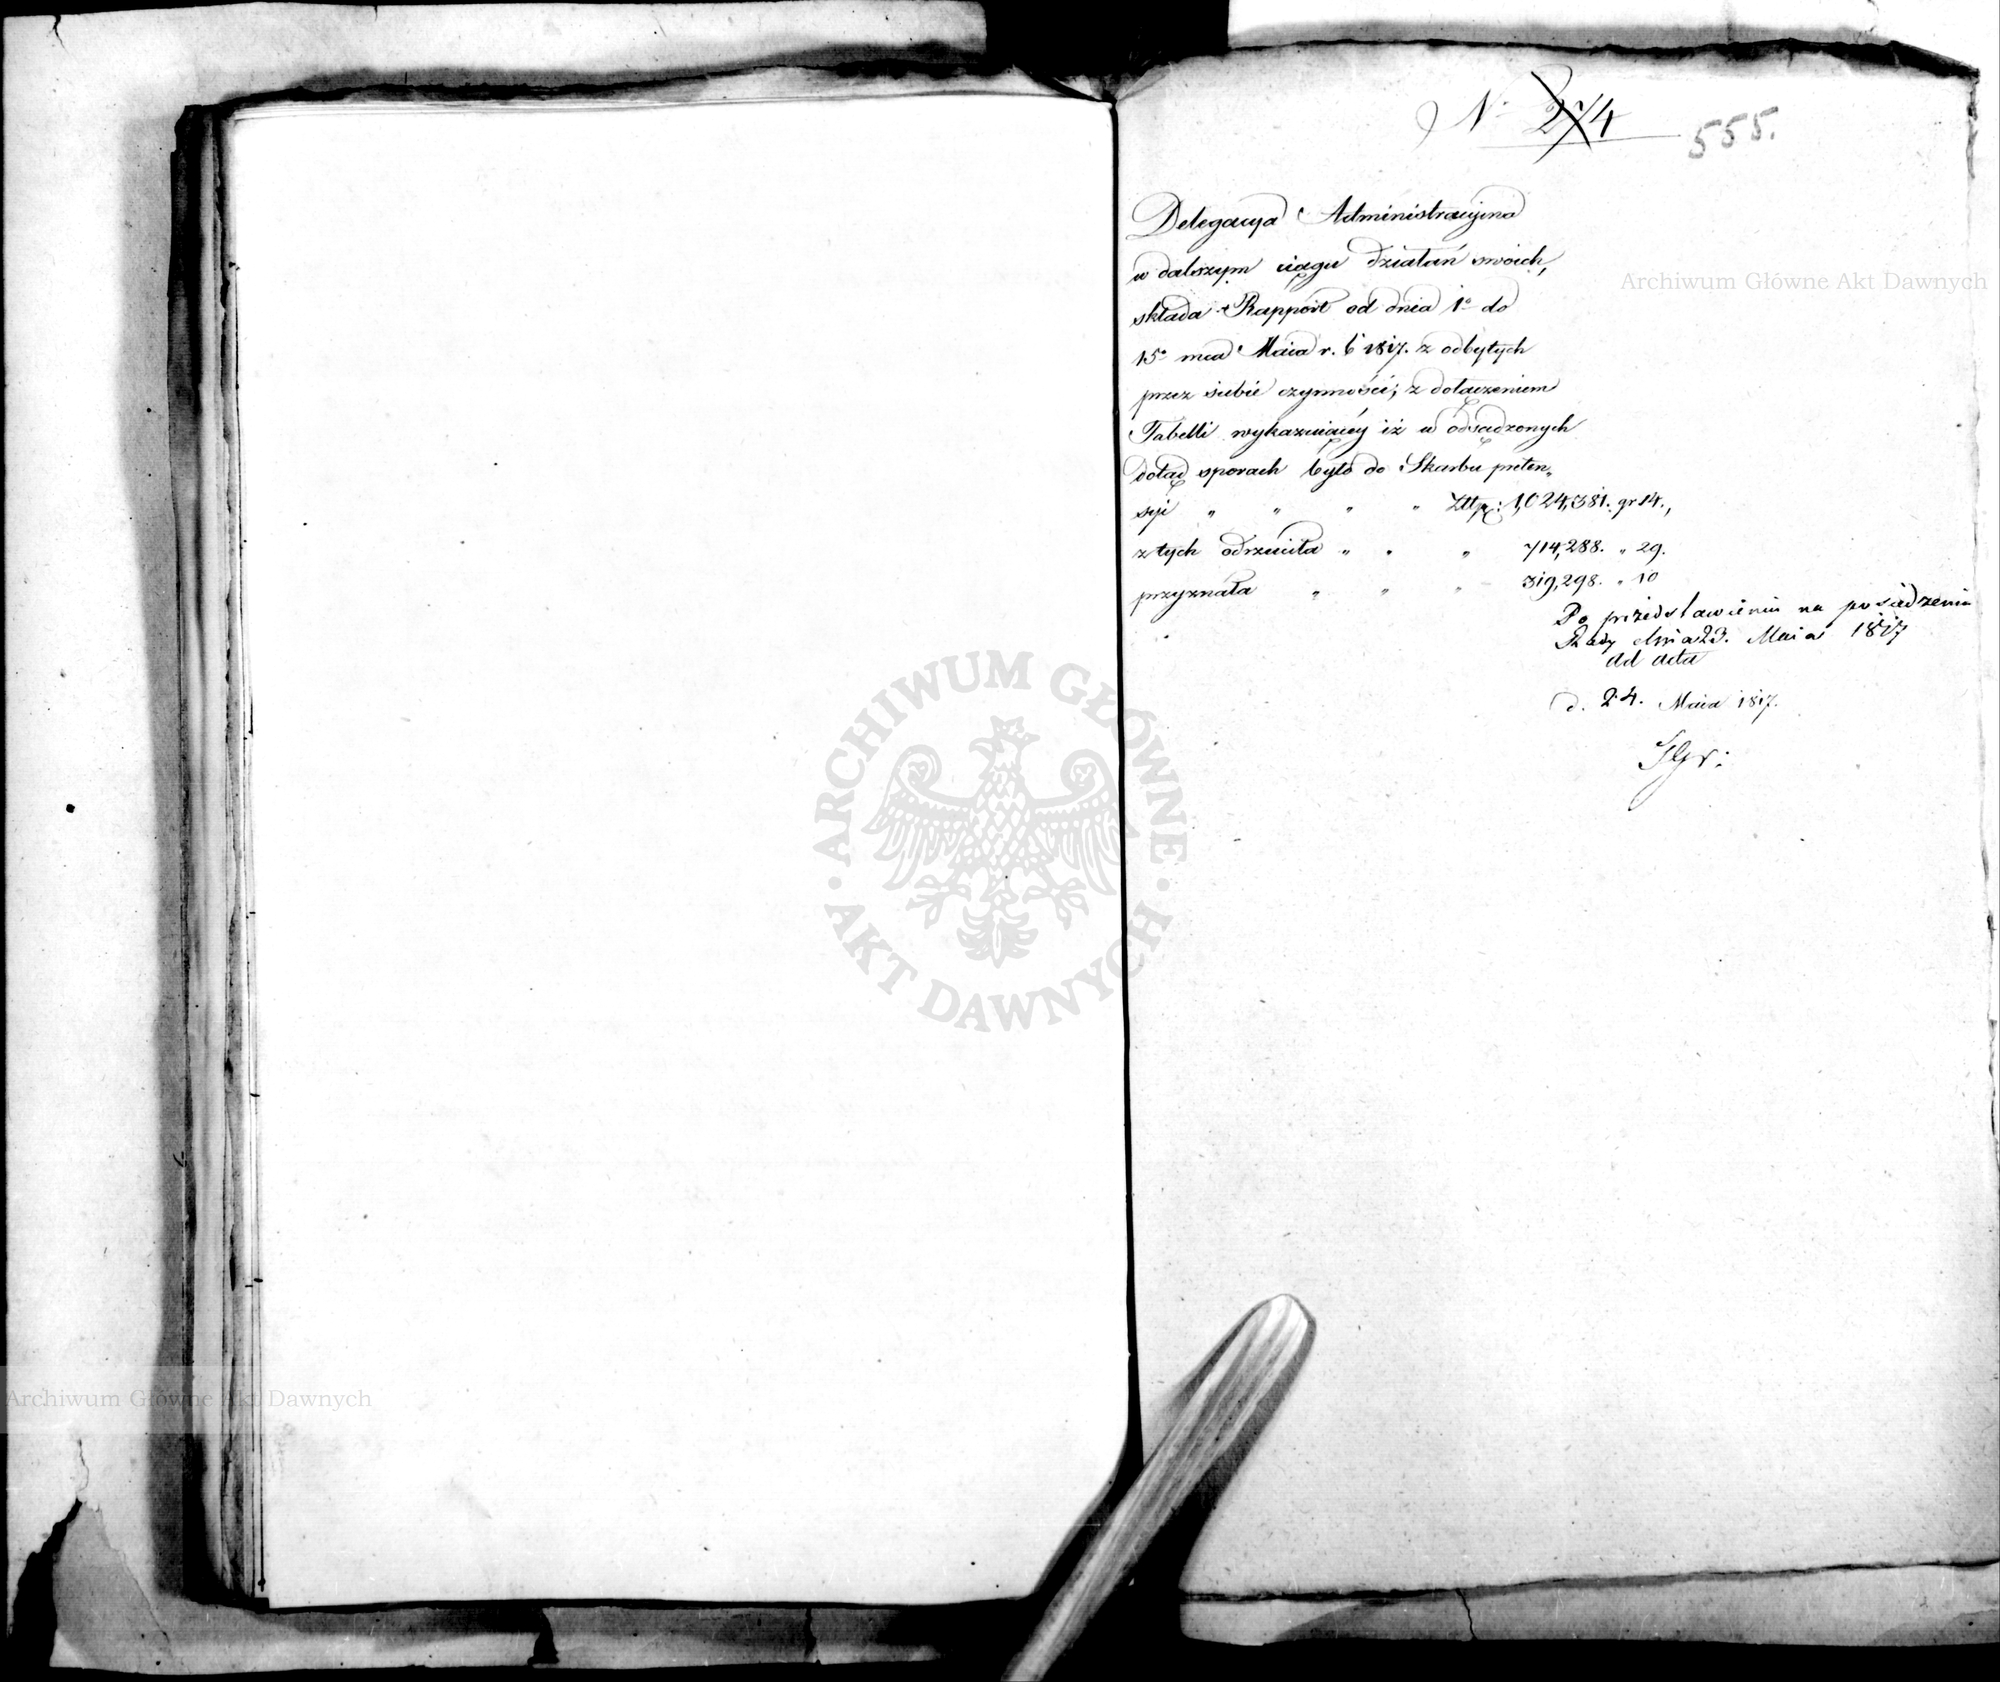 N. 274
555.
Delegacya Administracyina
w dalszym ciągu działań swoich,
składa Rapport od dnia 1º do
15º mca Maia r. b 1817. z odbytych
przez siebie czynności; z dołączeniem
Tabelli wykazuiącéy iż w odsądzonych
dotąd sporach było do Skarbu preten„
syi „ „ „ „ Złtp: 1,024,381. gr 14.,
z tych odrzuciła „ „ „ 714,288. „ 29.
przyznała „ „ „ 319,298. „ 10
Po przedstawieniu na posiedzeniu
Rady dnia 23. Maia 1817
ad acta
d. 24. Maia 1817.
Archiwum Główne Akt Dawnych
ARCHIWUM GŁÓWNE
· AKT DAWNYCH ·
Archiwum Główne Akt Dawnych